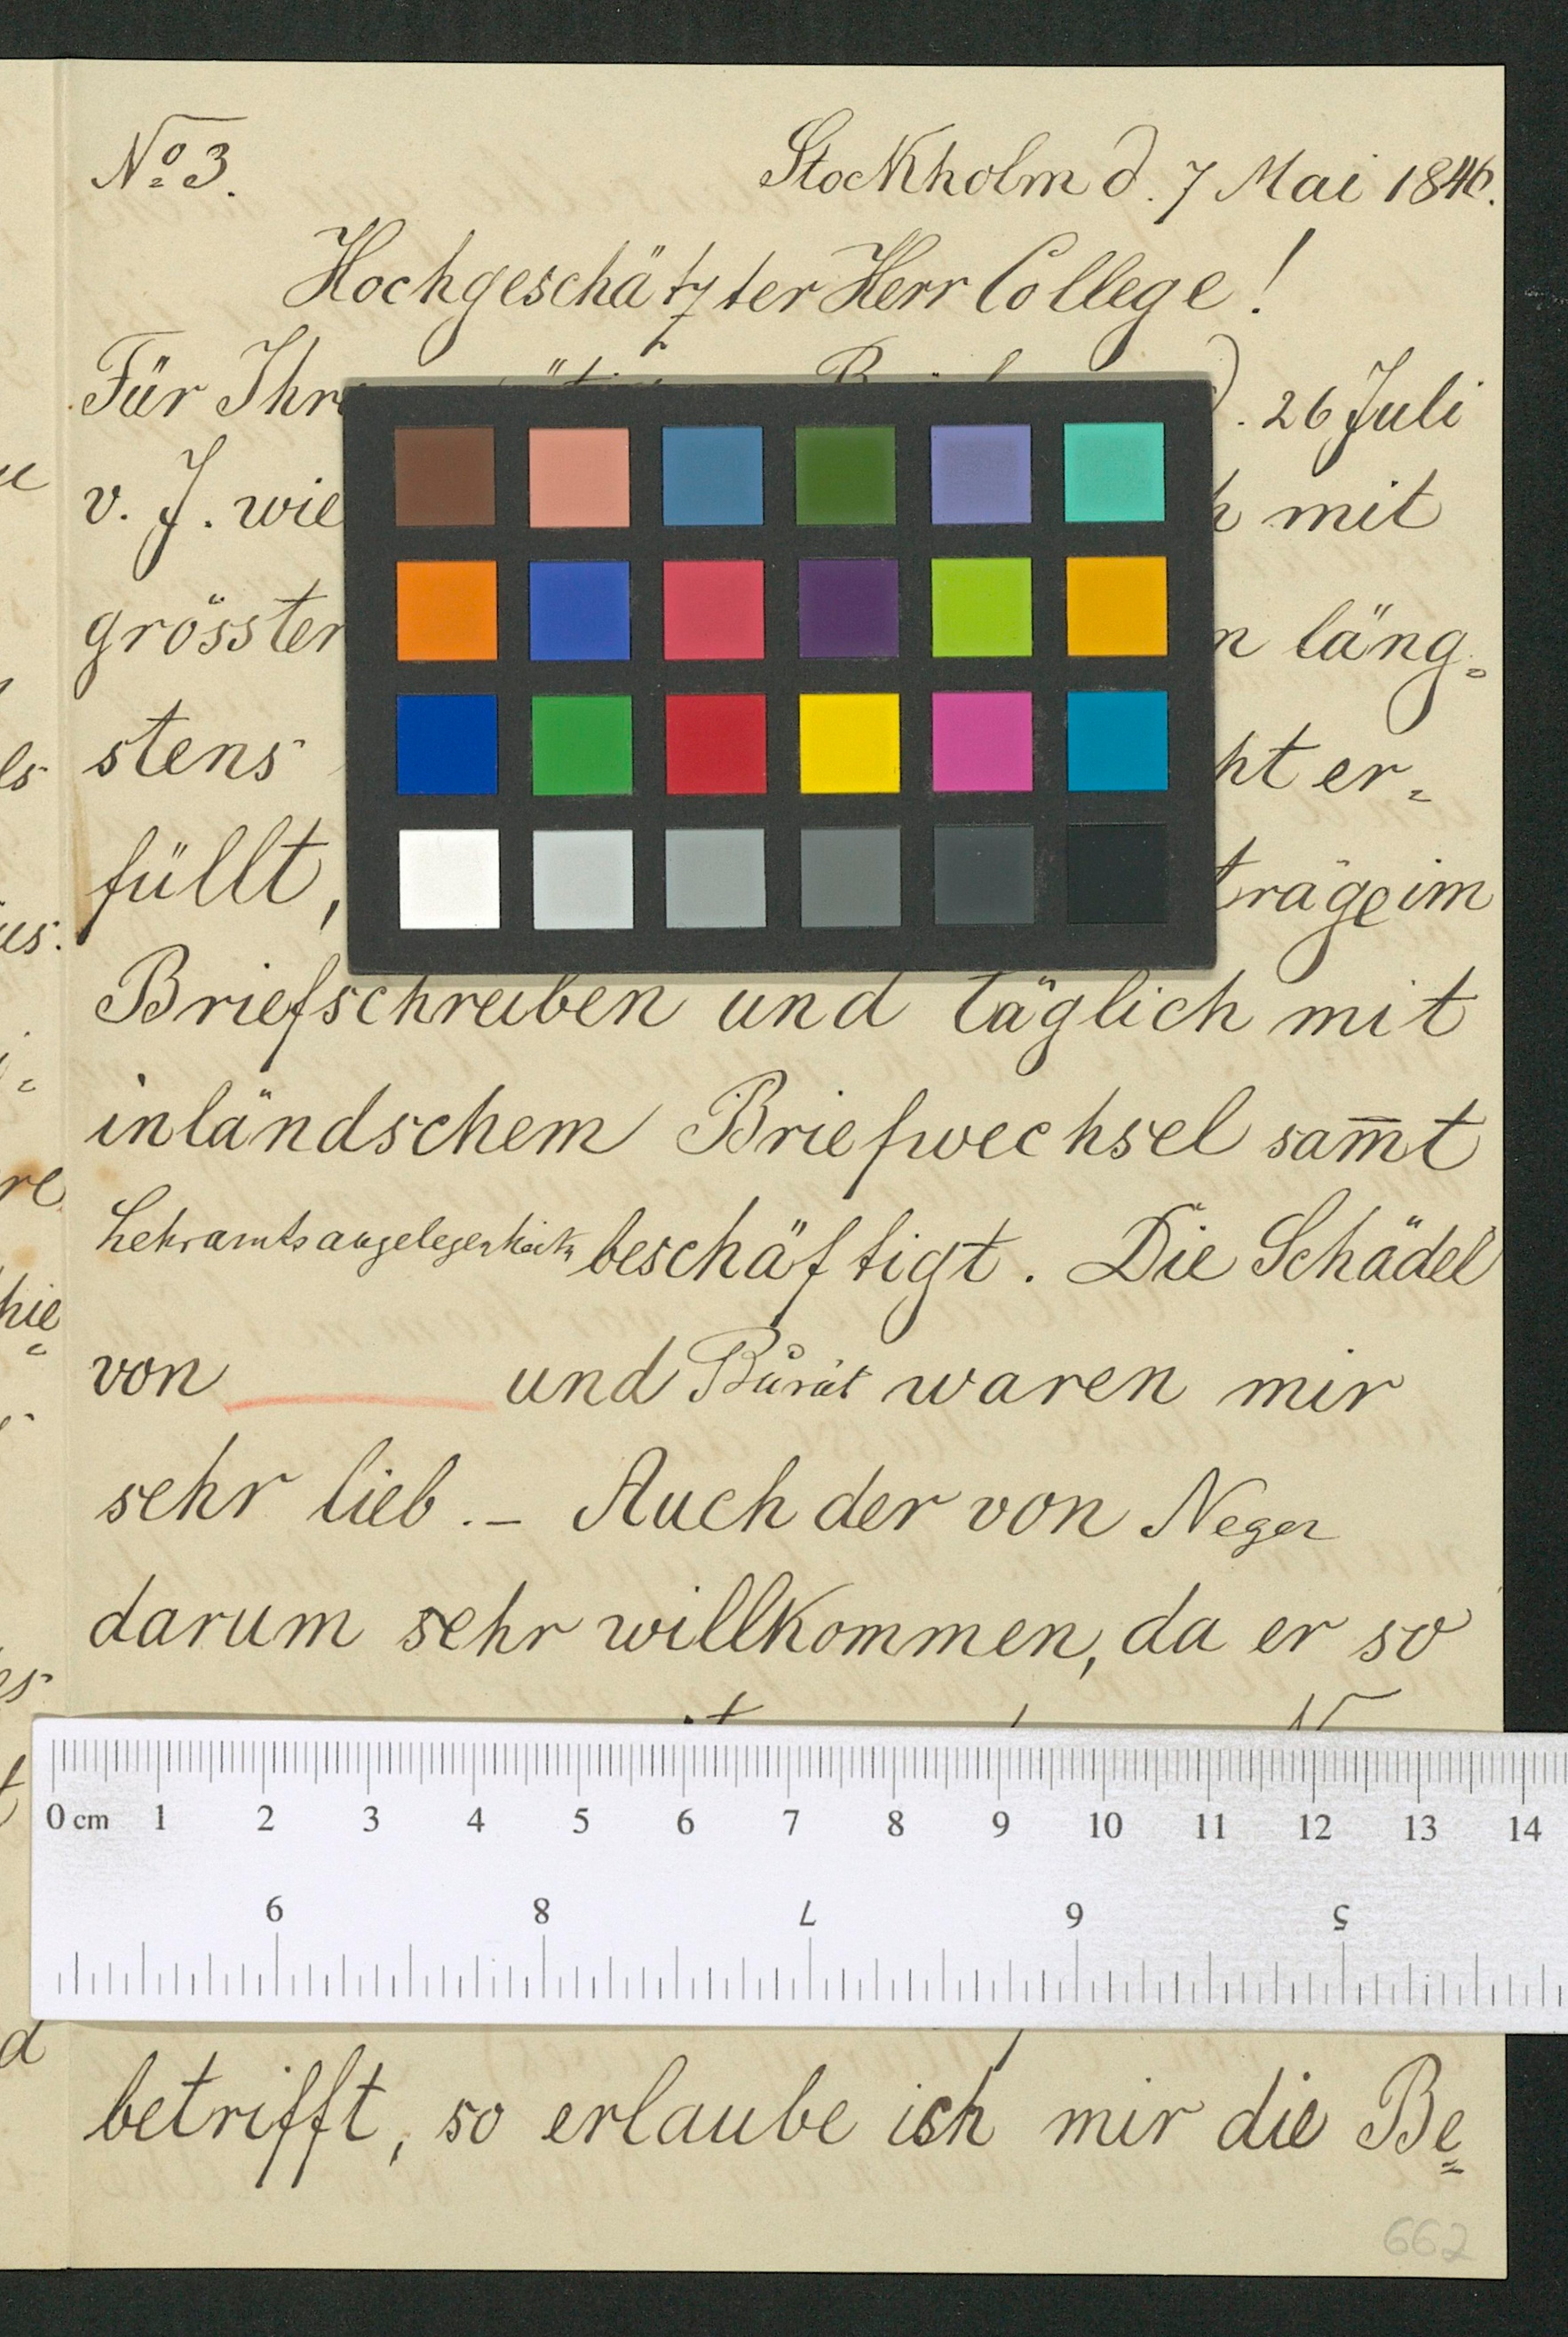 No. 3.
Stockholm d. 7 Mai 1846.
Hochgeschätzter Herr College!
Für Ihre d. 26 Juli
v. J. wie mit
grösster läng=
stens er=
füllt, träge im
Briefschreiben und täglich mit
inländschem Briefwechsel sam̅t
Lehramtsangelegenheiten beschäftigt. Die Schädel
von und Burät waren mir
sehr lieb. – Auch der von Neger
darum sehr willkommen, da er so
0 cm 1 2 3 4 5 6 7 8 9 10 11 12 13 14
9 8 7 6 5
betrifft, so erlaube ich mir die Be=
662